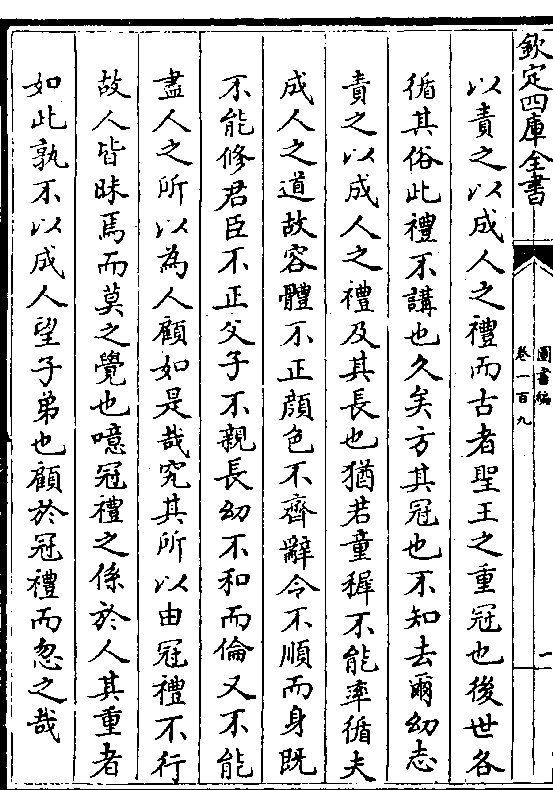 欽定四庫全書
圖書編
卷一百九
一
以責之以成人之禮而古者聖王之重冠也後世各
循其俗此禮不講也久矣方其冠也不知去爾幼志
責之以成人之禮及其長也猶若童穉不能率循夫
成人之道故容體不正顔色不齊辭令不順而身既
不能修君臣不正父子不親長幼不和而倫又不能
盡人之所以為人顧如是哉究其所以由冠禮不行
故人皆昧焉而莫之覺也噫冠禮之係於人其重者
如此孰不以成人望子弟也顧於冠禮而忽之哉